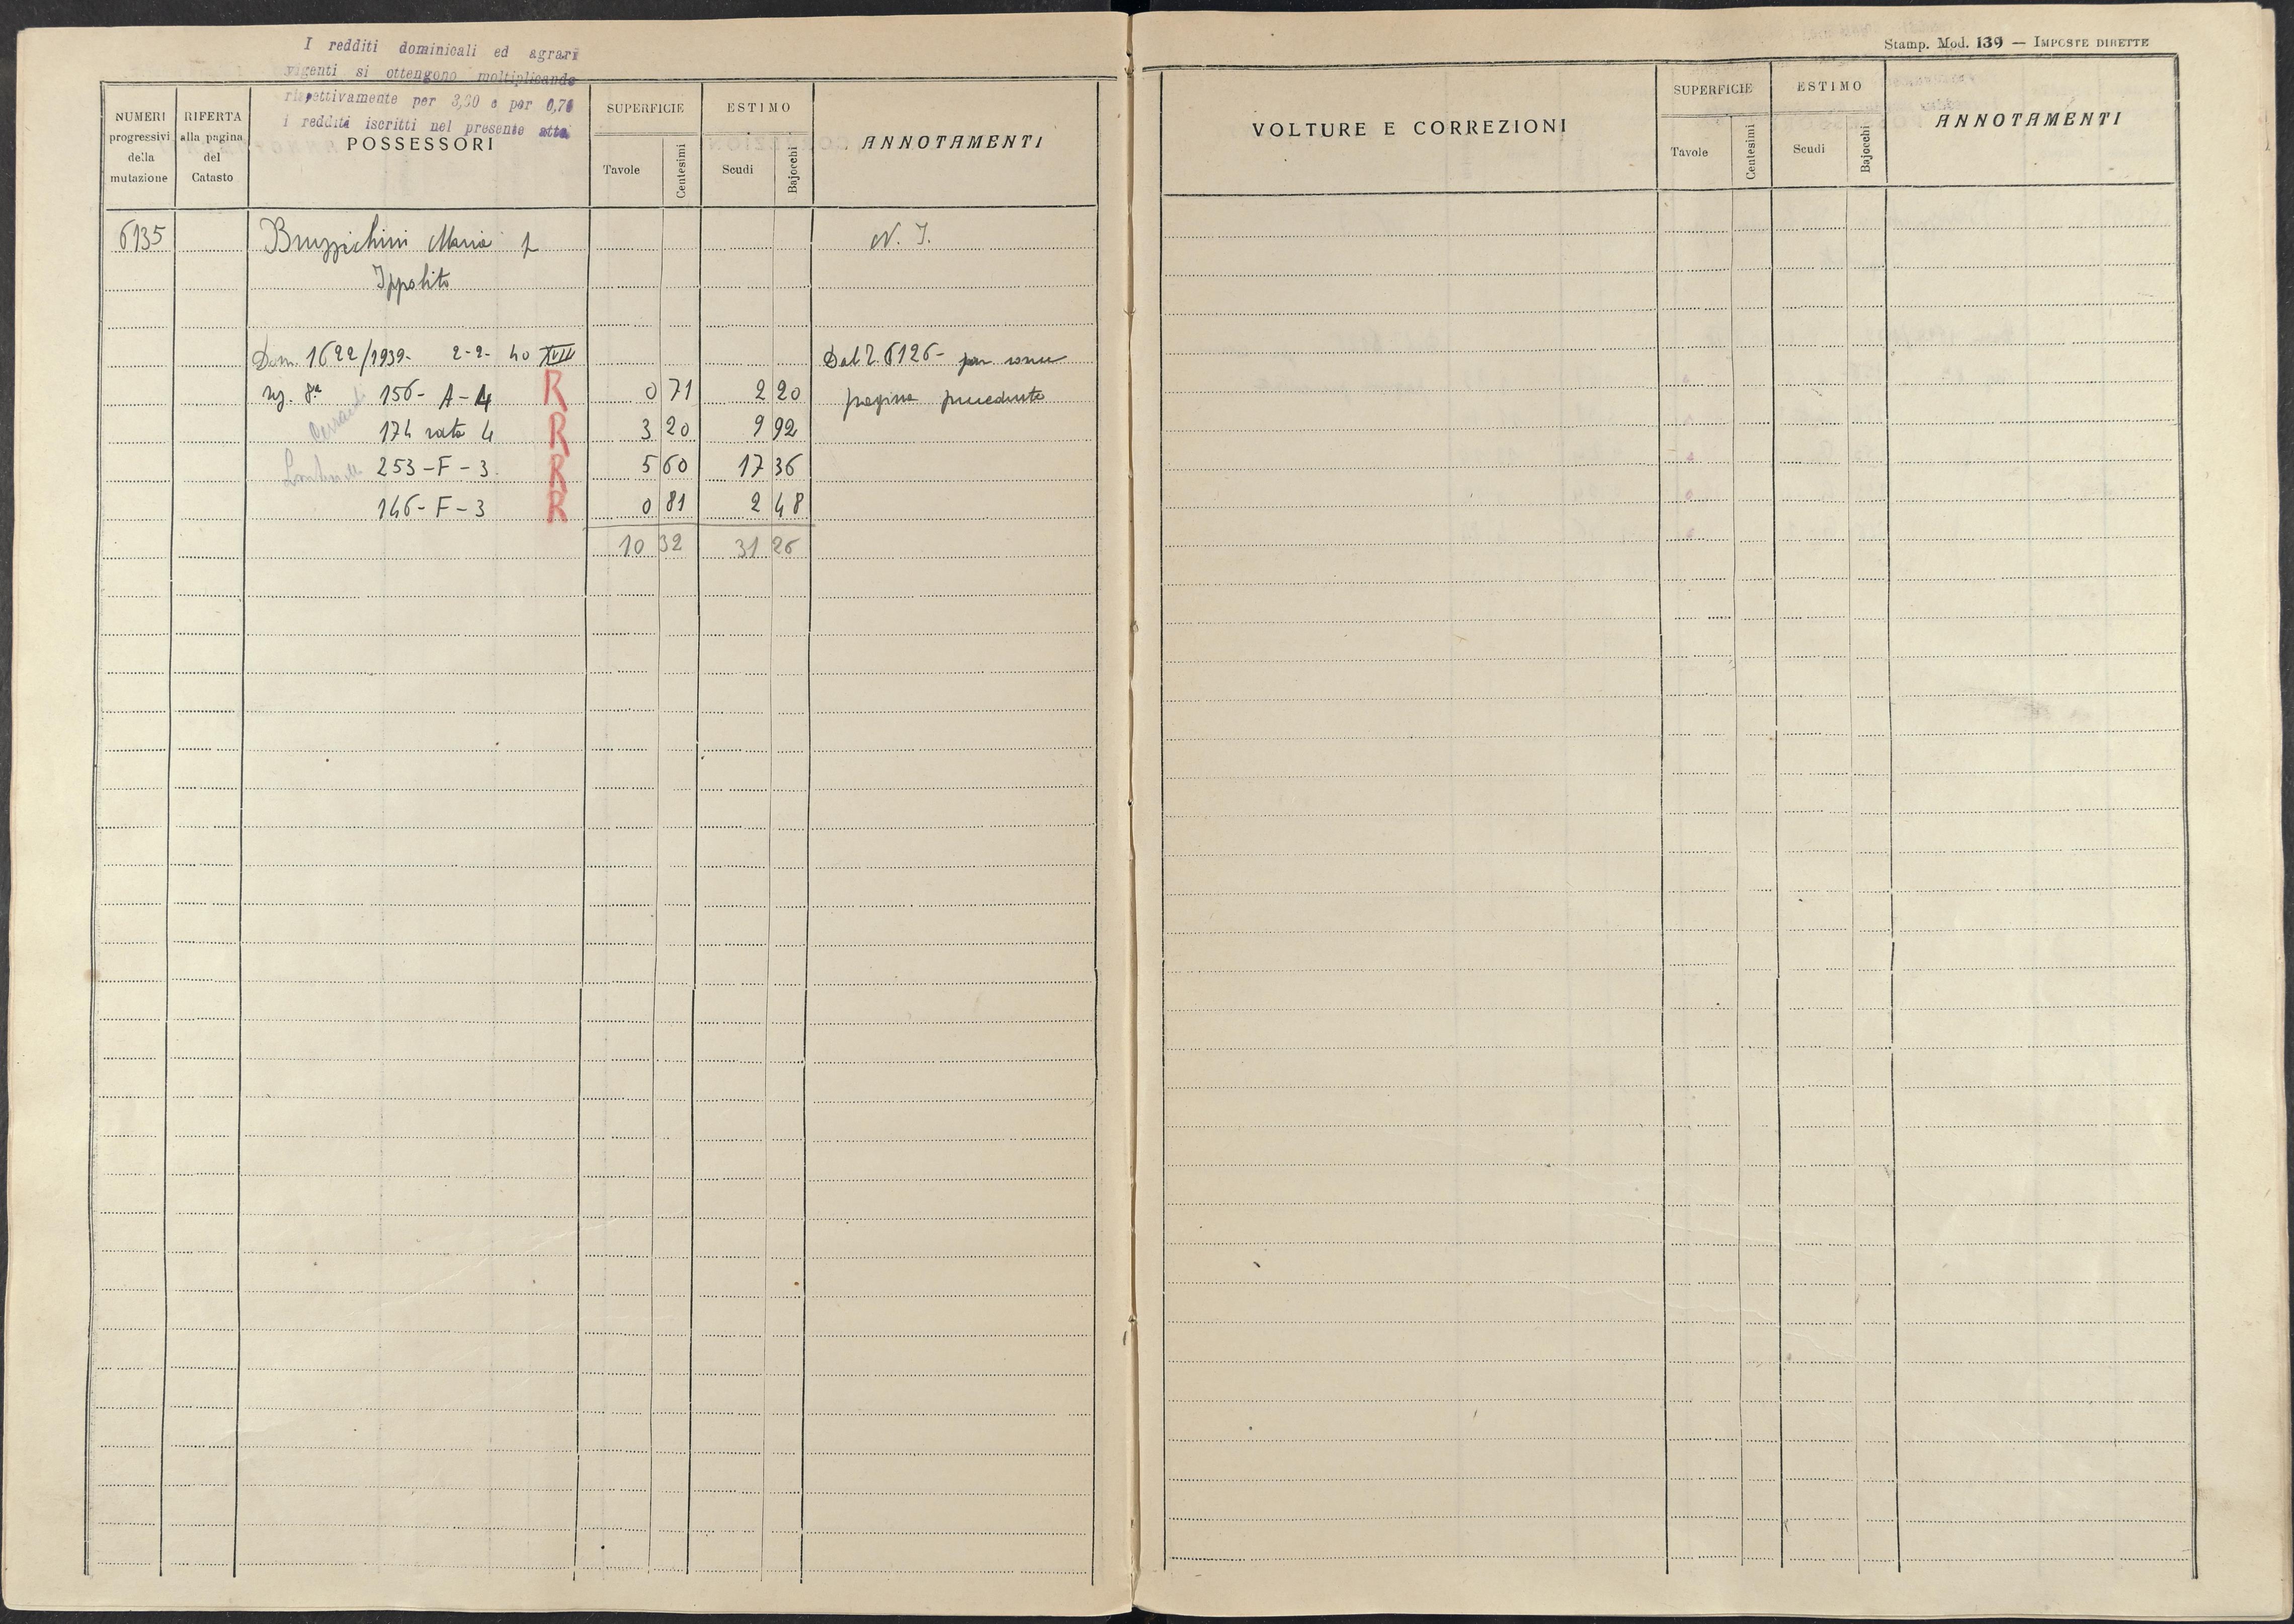 I redditi dominicali ed agrari
vigenti si ottengono moltiplicando
rispettivamente per 3,30 e per 0,76
i redditi iscritti nel presente atto
NUMERI
progressivi
della
mutazione
RIFERTA
alla pagina
del
Catasto
POSSESSORI
SUPERFICIE
Tavole
Centesimi
ESTIMO
Scudi
Bajocchi
ANNOTAMENTI
6135 Bruzzichini Maria f. N. I.
Ippolito
Dom. 1622/1939- 2-2-40 XVIII Dal 2. 6126-
156- A-4 R 0 71 2 20 pagina precedente
174 rata 4 R 3 20 9 92
253-F-3 R 5 60 17 36
146-F-3 R 0 81 2 48
10 32 31 26
Stamp. Mod. 139 — IMPOSTE DIRETTE
VOLTURE E CORREZIONI
SUPERFICIE
Tavole
Centesimi
ESTIMO
Scudi
Bajocchi
ANNOTAMENTI